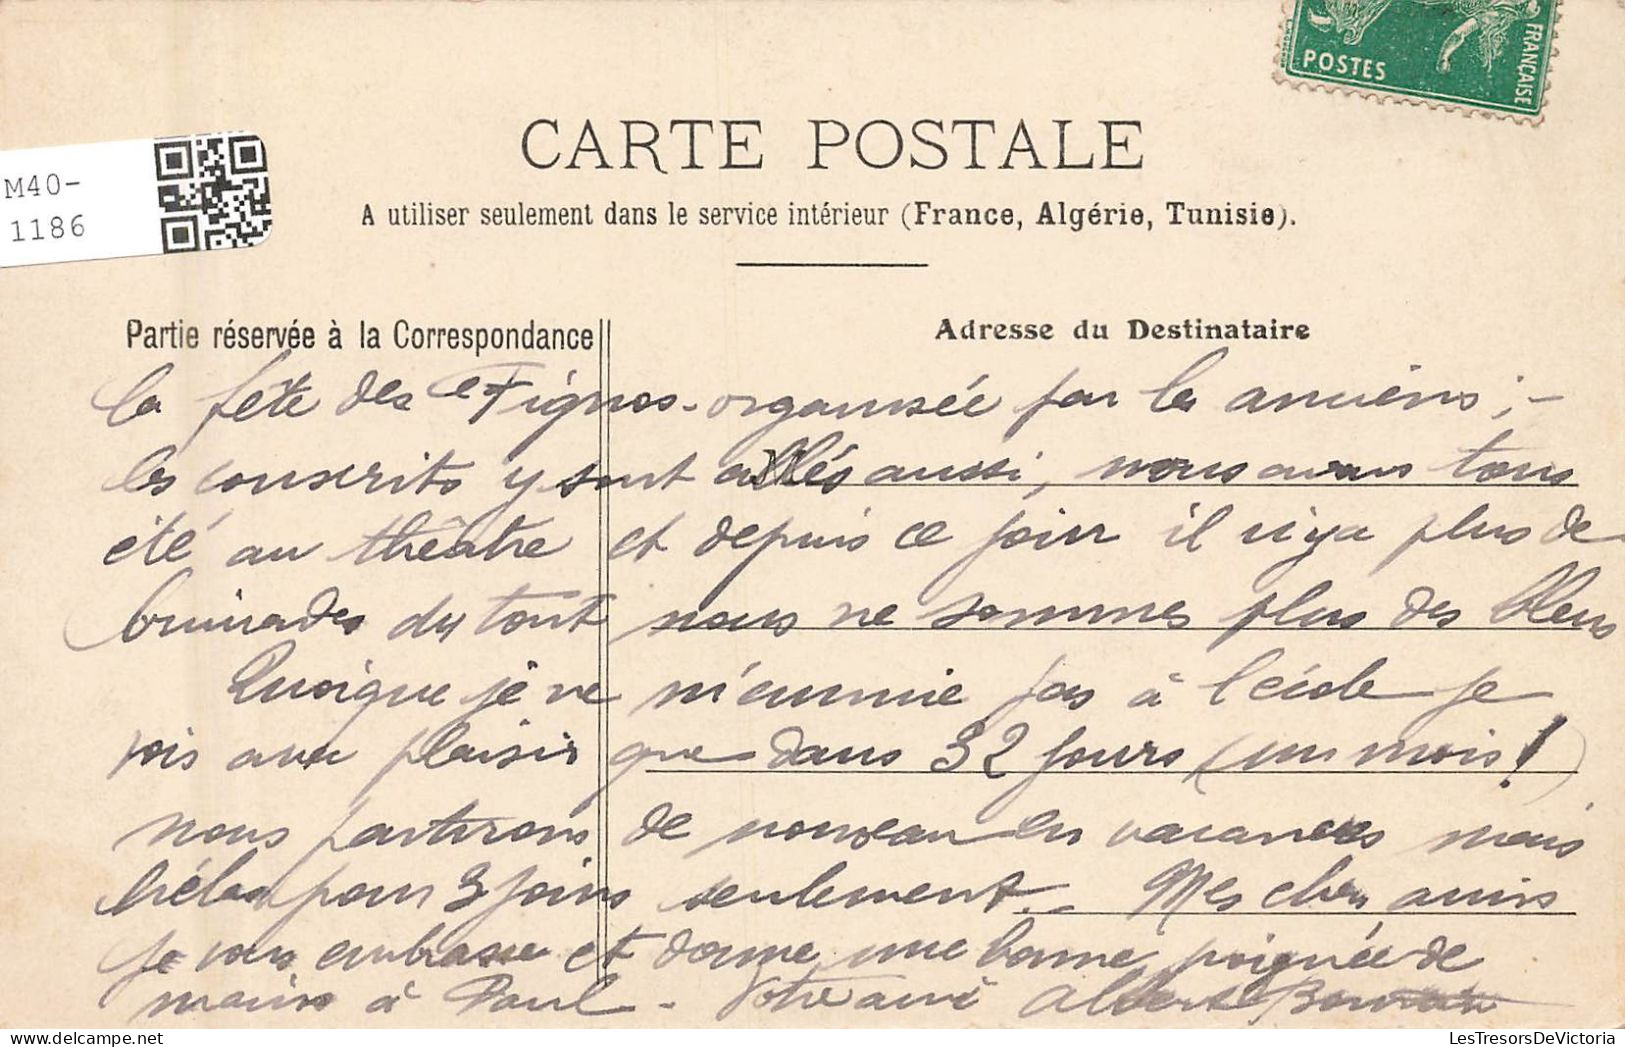 POSTES
FRANÇAISE
CARTE POSTALE
M40-
1186
A utiliser seulement dans le service intérieur (France, Algérie, Tunisie).
Partie réservée à la Correspondance
Adresse du Destinataire
la fête des Fignos - organisée par les anciens ; -
les conscrits y sont allés aussi, nous avons tous
été au théâtre et depuis ce jour il n'y a plus de
brimades du tout nous ne sommes plus des bleus
Quoique je ne m'ennuie pas à l'école je
vois avec plaisir que dans 32 jours (un mois!)
nous partirons de nouveau en vacances mais
hélas pour 3 jours seulement. - Mes chers amis
je vous embrasse et donne une bonne poignée de
mains à Paul - Votre ami Albert
LesTresorsDeVictoria